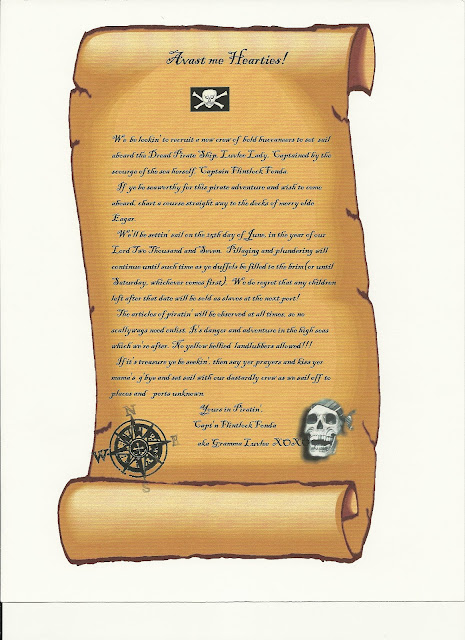 Avast me Hearties!
We be lookin' to recruit a new crew of bold buccaneers to set sail
aboard the Dread Pirate Ship, Luvlee Lady. Captained by the
scourge of the sea herself, Captain Flintlock Fonda.
If ye be seaworthy for this pirate adventure and wish to come
aboard, chart a course straight way to the docks of merry olde
Eagar.
We'll be settin' sail on the 25th day of June, in the year of our
Lord Two Thousand and Seven. Pillaging and plundering will
continue until such time as ye duffels be filled to the brim(or until
Saturday, whichever comes first). We do regret that any children
left after that date will be sold as slaves at the next port!
The articles of piratin' will be observed at all times, so no
scallywags need enlist. It's danger and adventure in the high seas
which we're after. No yellow bellied landlubbers allowed!!!
If it's treasure ye be seekin', then say yer prayers and kiss yer
mama's g'bye and set sail with our dastardly crew as we sail off to
places and ports unknown.
Yours in Piratin',
Capt'n Flintlock Fonda
aka Gramma Luvlee XOXO
N
W E
S